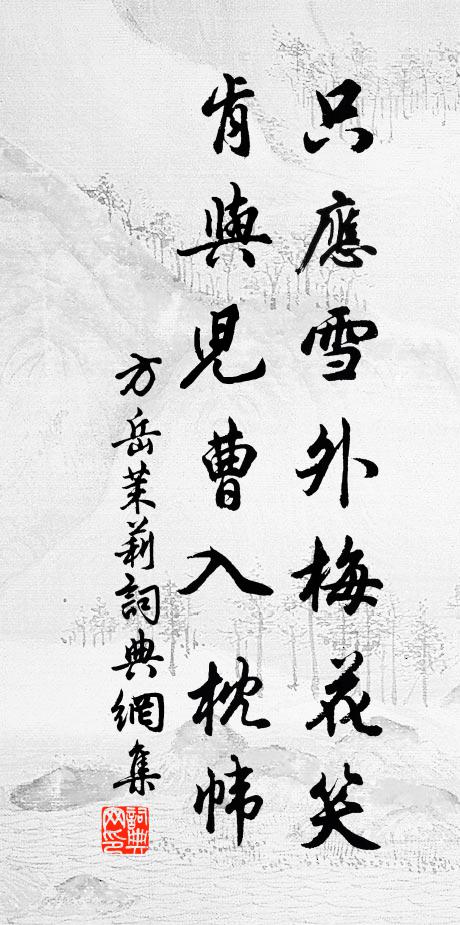 只應雪外梅花笑
肯與兒曹入枕幃
方岳茉莉詞典網集
詞典网印